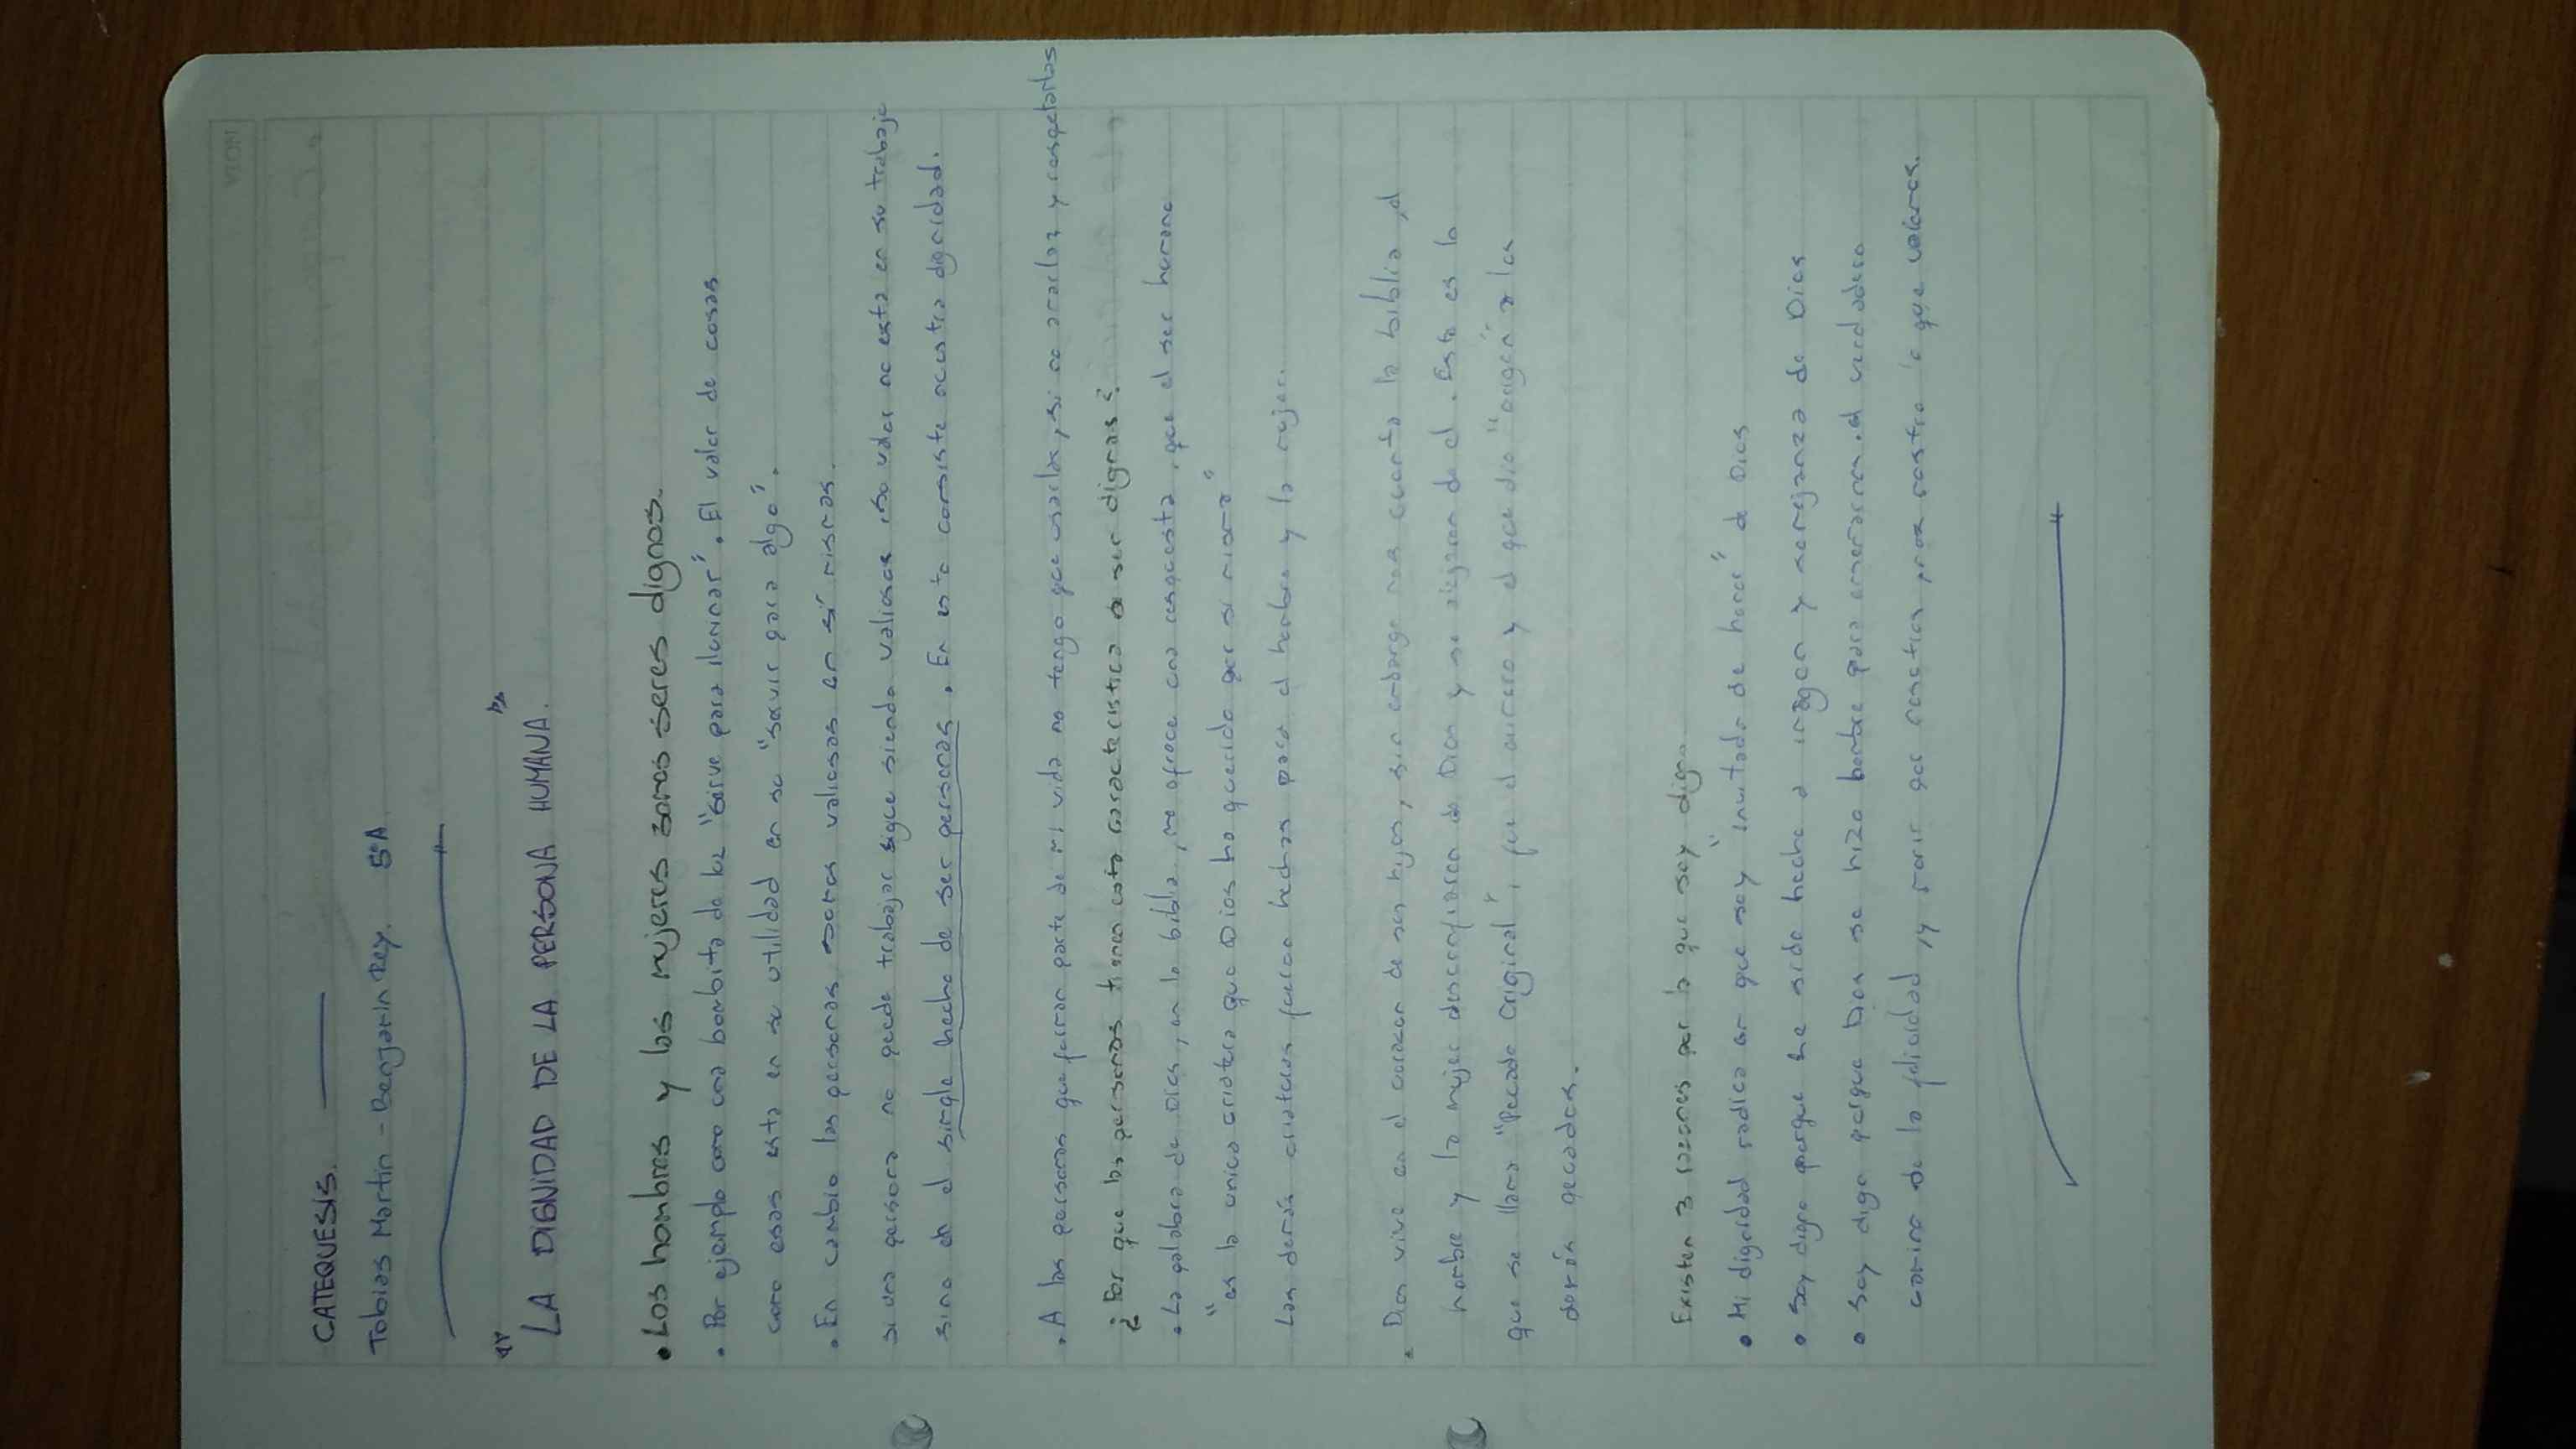 NOTA
CATEQUESIS.
Tobias Martin - Benjamin Rey. 5°A
"LA DIGNIDAD DE LA PERSONA HUMANA."
• Los hombres y las mujeres somos seres dignos.
• Por ejemplo como una bombita de luz "sirve para iluminar". El valor de cosas
como esas esta en su utilidad en su "servir para algo".
• En cambio las personas somos valiosas en sí mismas.
si una persona no puede trabajar sigue siendo valiosas, su valor no esta en su trabajo
sino en el simple hecho de ser personas. En esto consiste nuestra dignidad.
• A las personas que forman parte de mi vida no tengo que usarlas, si no amarlas y respetarlas
¿Por que las personas tienen esta caracteristica de ser dignas?
• La palabra de Dios, en la biblia, nos ofrece una respuesta, que el ser humano
"es la unica criatura que Dios ha querido por si misma"
Las demás criaturas fueron hechas para el hombre y la mujer.
• Dios vive en el corazon de sus hijos, sin embargo nos cuenta la biblia, el
hombre y la mujer desconfiaron de Dios y se alejaron de el. Esto es lo
que se llama "Pecado Original", fue el primero y el que dio "origen" a los
demás pecados.
Existen 3 razones por lo que soy digno
• Mi dignidad radica en que soy "invitado de honor" de Dios
• Soy digno porque he sido hecho a imagen y semejanza de Dios
• Soy digo porque Dios se hizo hombre para enseñarnos el verdadero
camino de la felicidad, y morir por nosotros, nos mostro lo que valemos.